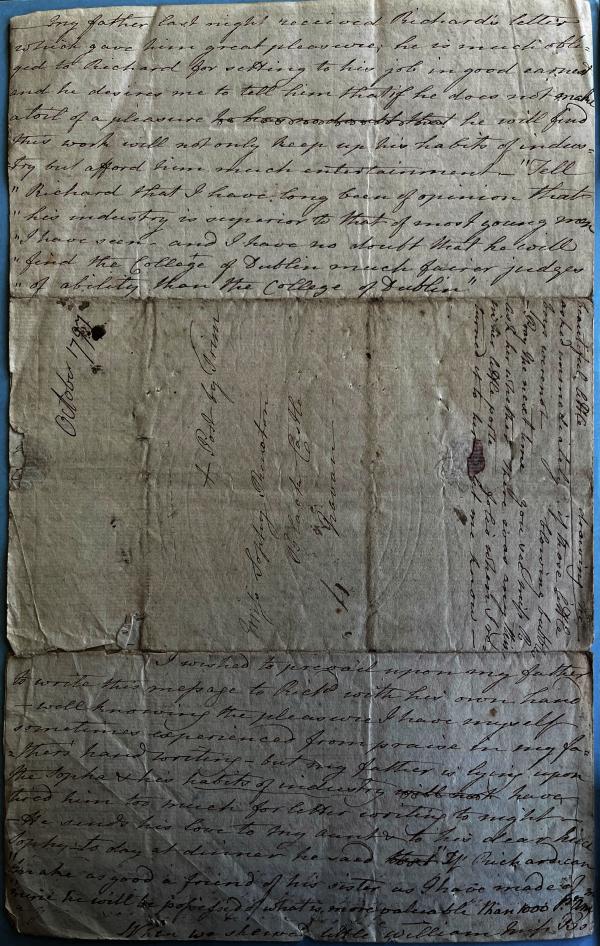 My father last night received Richard's letter
which gave him great pleasure; he is much obli=
ged to Richard for setting to his job in good earnest
and he desires me to tell him that if he does not make
a toil of a pleasure he has no doubt that he will find
this work will not only keep up his habits of indus=
try but afford him much entertainment - "Tell
"Richard that I have long been of opinion that
"his industry is superior to that of most young men
"I have seen and I have no doubt that he will
"find the College of Dublin much fairer judges
"of ability than the College of Dublin"
October 1787
+ Post by Trim
Miss Sophy Ruxton
Black Castle
Navan
4
beautiful little drawing
asked immediately if those little
boys were not blowing bubbles
Pray the next time you
ask her whether
let me know -
I wished to prevail upon my father
to write this message to Richd with his own hand
- well knowing the pleasure I have myself
sometimes experienced from praise in my fa=
=thers hand writing - but my father is lying upon
the Sopha & his habits of industry will not have
tired him too much for letter writing to night -
- He sends his love to my aunt & to his dear kind
Sophy - to day at dinner he said that "If Richard can
"make as good a friend of his sister as I have made of
mine he will be possessed of what is more valuable than 1000
When we shewed little William Miss